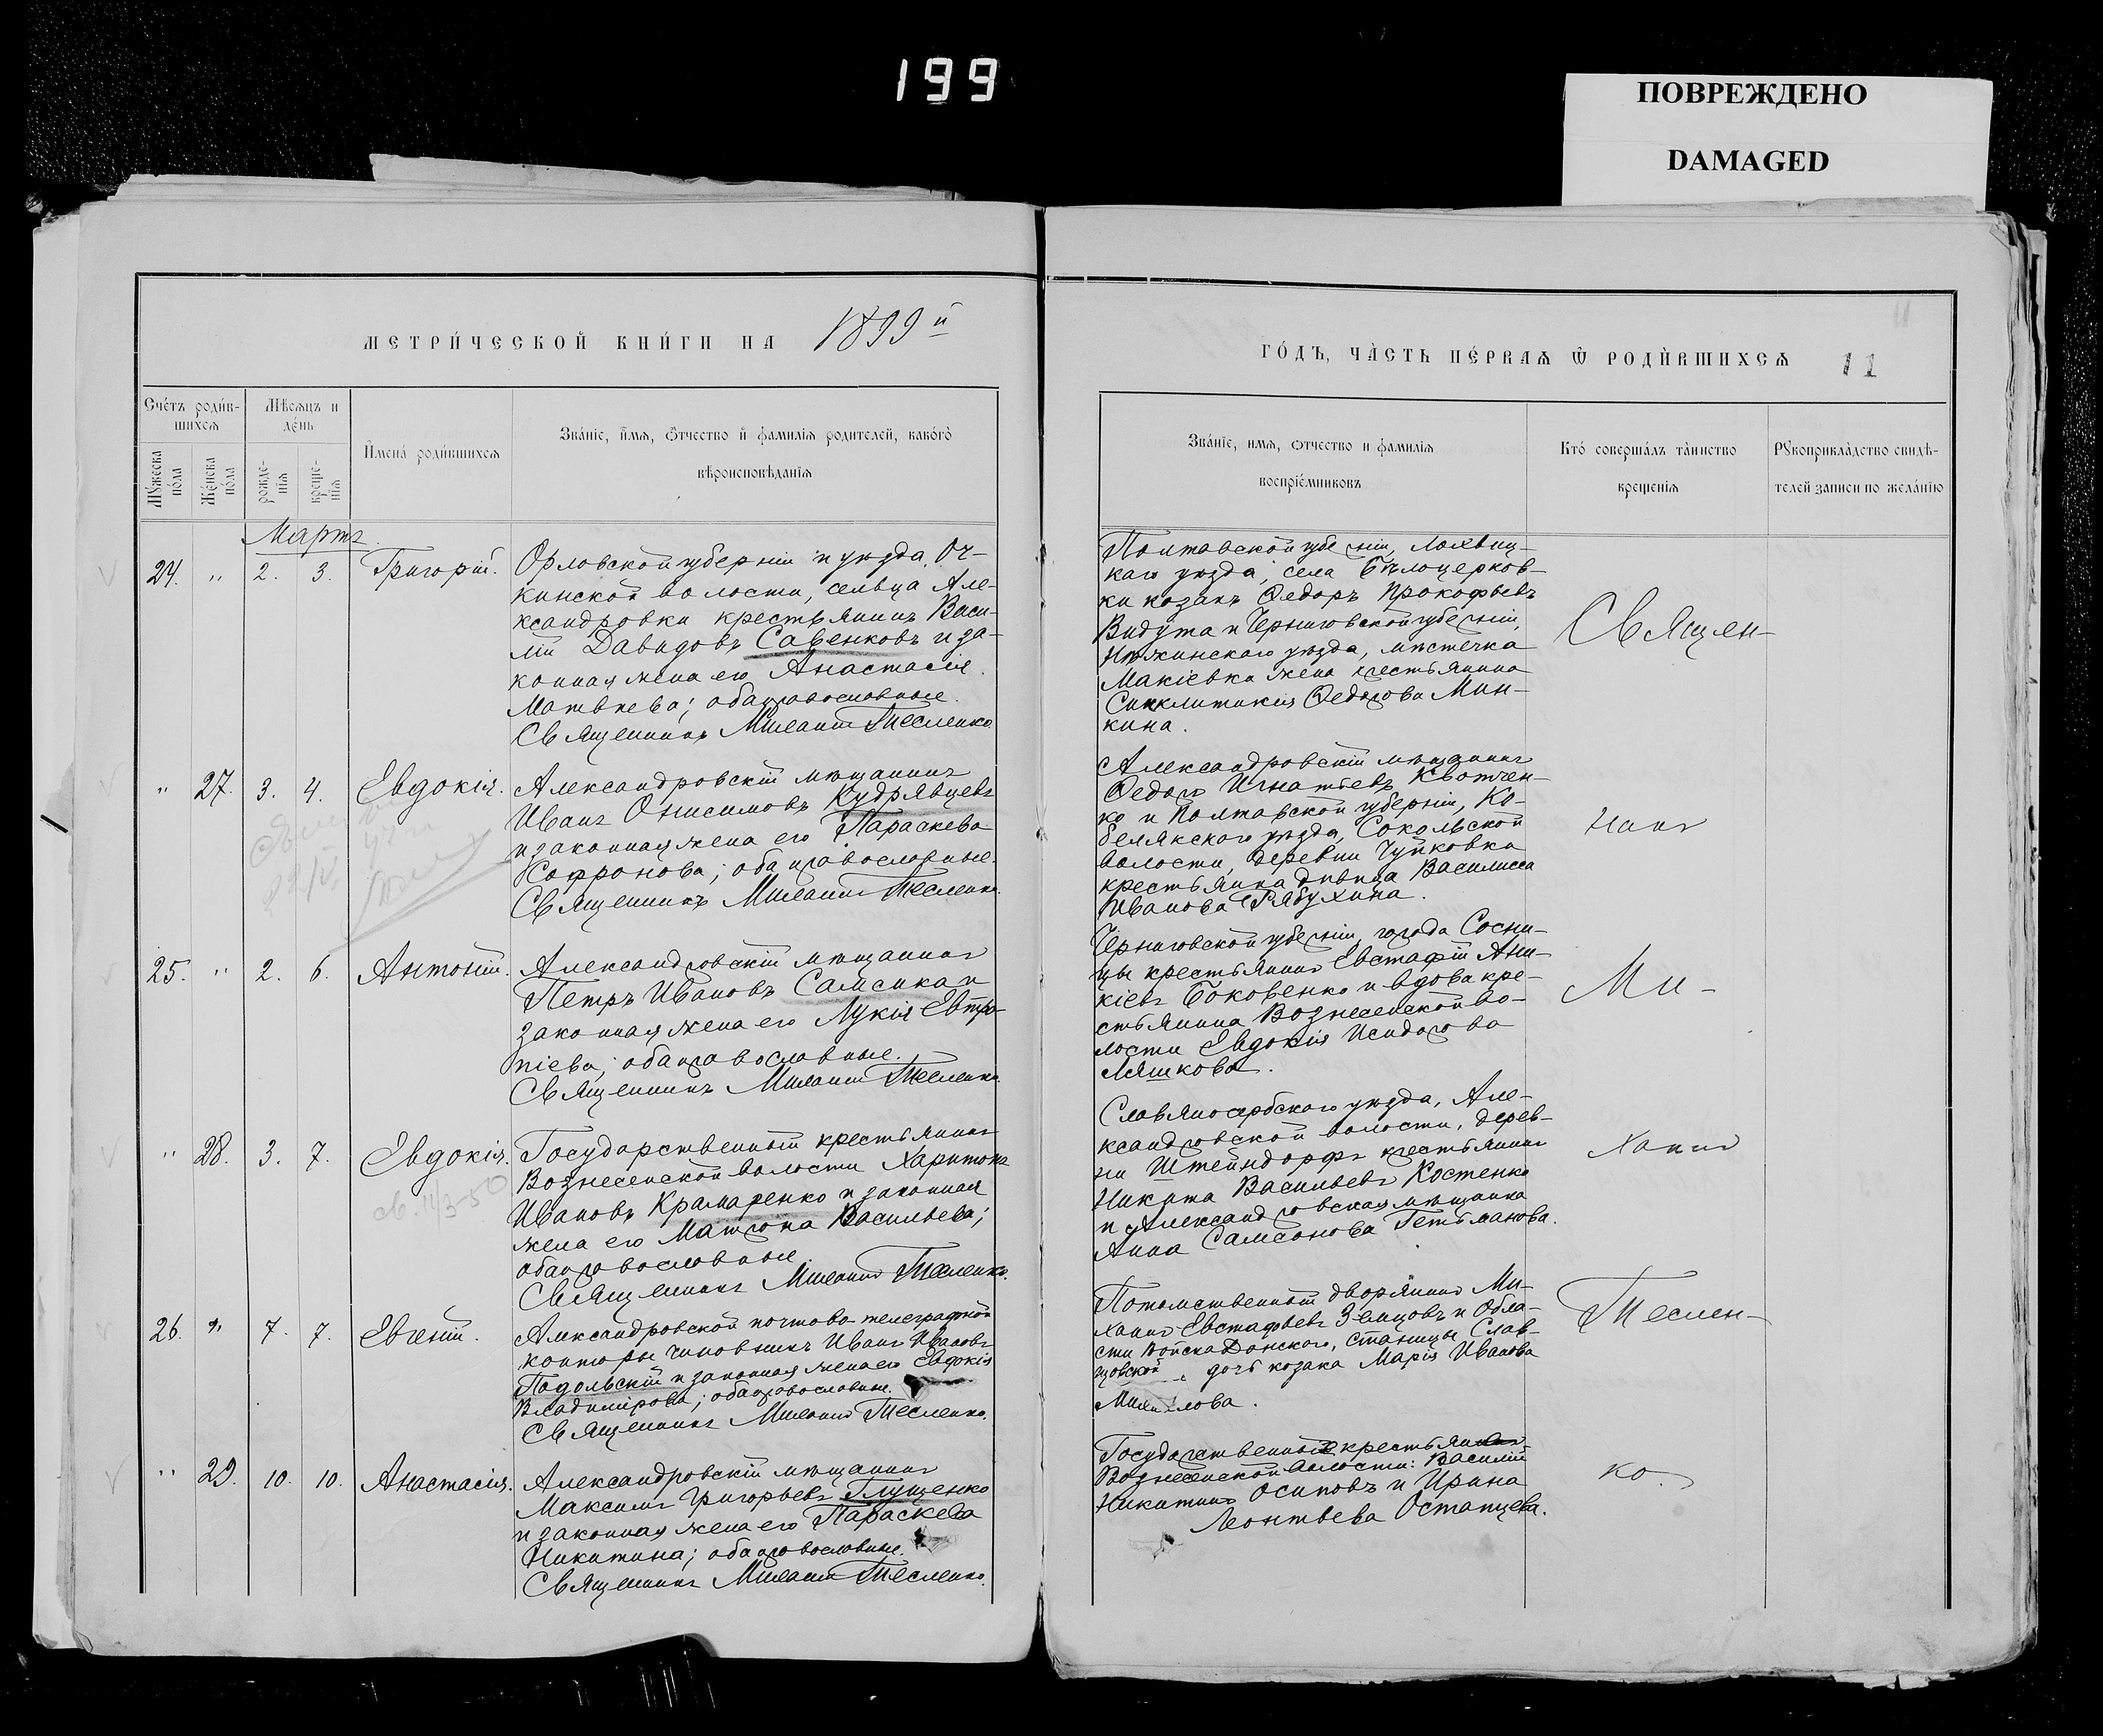 199
ПОВРЕЖДЕНО
DAMAGED
МЕТРИЧЕСКОЙ КНИГИ НА 1899й
ГОДЪ, ЧАСТЬ ПЕРВАЯ Ѿ РОДИВШИХСЯ 11
Счетъ родив-
шихся
Мѣсяцъ и
день
Мужеска
пола
Женска
пола
рожде-
нія
креще-
нія
Имена родившихся
Званіе, имя, Ѿчество и фамилія родителей, какого
вѣроисповѣданія
Званіе, имя, ѿчество и фамилія
воспріемниковъ
Кто совершалъ таинство
крещенія
Рукоприкладство свидѣ-
телей записи по желанію
Мартъ.
24. " 2. 3. Григорій.
Орловской губерніи и уѣзда, Оч-
кинской волости, сельца Але-
ксандровки крестьянинъ Васи-
лій Давидовъ Савенковъ и за-
конная жена его Анастасія
Матвѣева; оба православные.
Священникъ Михаилъ Тесленко.
Полтавской губерніи, Лохвиц-
каго уѣзда, села Бѣлоцерков-
ки козакъ Ѳедоръ Прокофьевъ
Видута и Черниговской губерніи,
Нѣжинскаго уѣзда, мѣстечка
Макіевки жена крестьянина
Синклитикія Ѳедорова Мин-
кина.
Священ-
" 27. 3. 4. Евдокія.
Александровскій мѣщанинъ
Иванъ Онисимовъ Кудрявцевъ
и законная жена его Параскева
Софронова; оба православные.
Священникъ Михаилъ Тесленко.
Александровскій мѣщанинъ
Ѳедоръ Игнатьевъ Квотчен-
ко и Полтавской губерніи, Ко-
белякскаго уѣзда, Сокольской
волости, деревни Чуйковка
крестьянка дѣвица Василисса
Иванова Рябухина.
никъ
25. " 2. 6. Антоній.
Александровскій мѣщанинъ
Петръ Ивановъ Самсика и
законная жена его Лукія Евтро-
піева; оба православные.
Священникъ Михаилъ Тесленко.
Черниговской губерніи, города Сосни-
цы крестьянинъ Евстафій Ани-
кіевъ Боковенко и вдова кре-
стьянина Вознесенской во-
лости Евдокія Исидорова
Ляшкова.
Ми-
" 28. 3. 7. Евдокія.
Государственный крестьянинъ
Вознесенской волости Харитонъ
Ивановъ Крамаренко и законная
жена его Матрона Васильева;
оба православные.
Священникъ Михаилъ Тесленко.
Славяносербскаго уѣзда, Але-
ксандровской волости, дерев-
ни Штейндорфъ крестьянинъ
Никита Васильевъ Костенко
и Александровская мѣщанка
Анна Самсонова Гетьманова.
хаилъ
26. " 7. 7. Евгеній.
Александровской почтово-телеграфной
конторы чиновникъ Иванъ Ивановъ
Подольскій и законная жена его Евдокія
Владимірова; оба православные.
Священникъ Михаилъ Тесленко.
Потомственный дворянинъ Ми-
хаилъ Евстафьевъ Земцовъ и Обла-
сти Войска Донскаго, станицы Слав-
цовской дочь козака Марія Иванова
Теслен-
" 29. 10. 10. Анастасія.
Александровскій мѣщанинъ
Максимъ Григорьевъ Глущенко
и законная жена его Параскева
Никитина; оба православные.
Священникъ Михаилъ Тесленко.
Государственные крестьяне
Вознесенской волости: Василій
Никитинъ Осиповъ и Ирина
Леонтьева Остапцева.
ко.